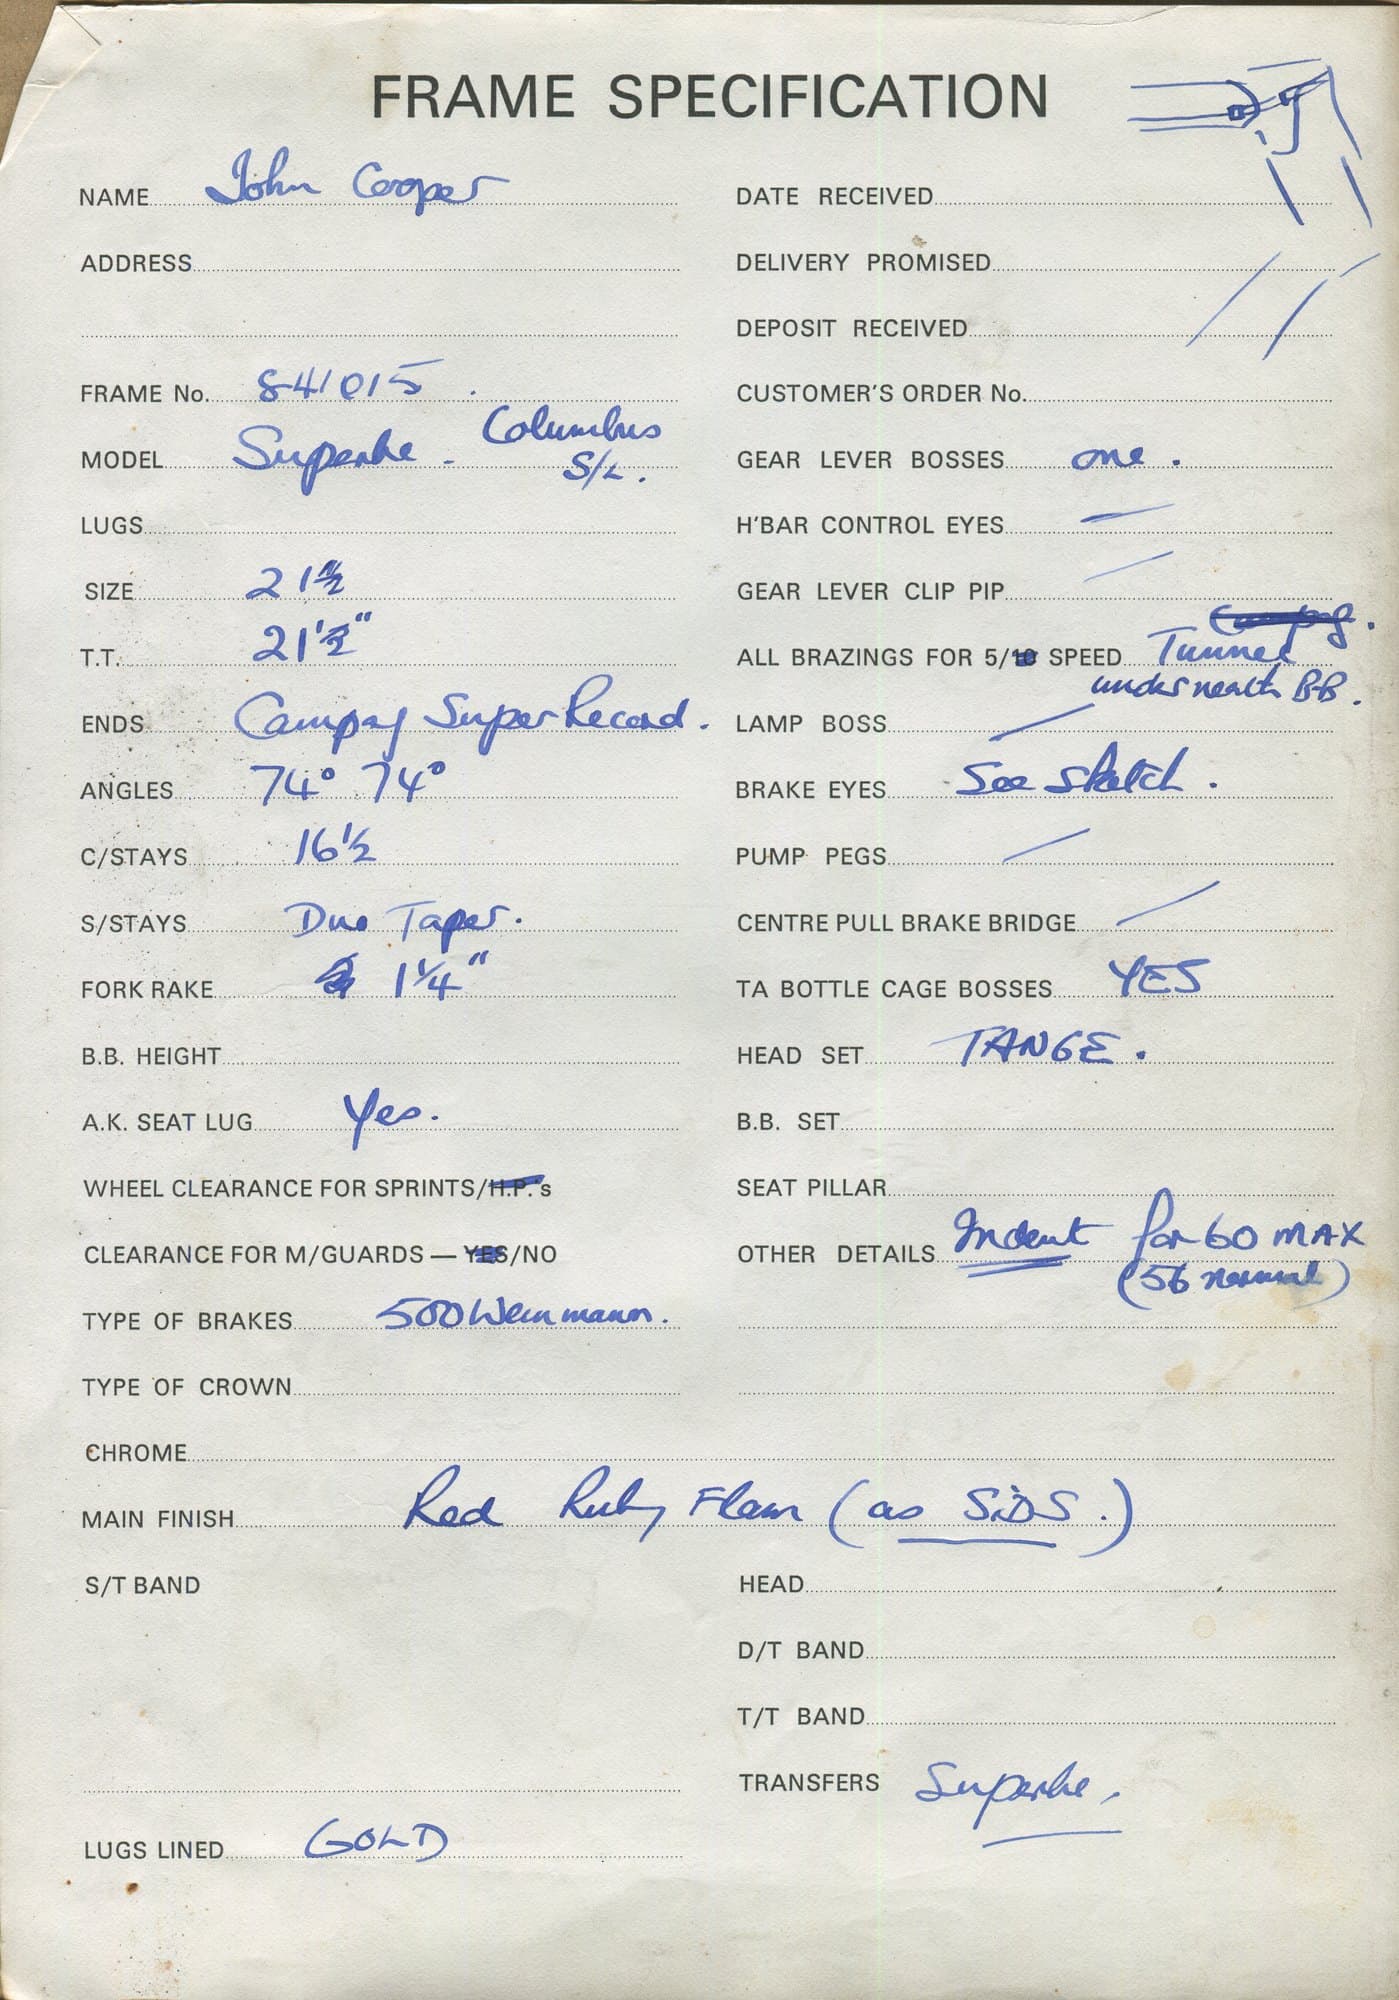 FRAME SPECIFICATION
NAME John Cooper
ADDRESS
FRAME No. 841015.
MODEL Superbe. Columbus
S/L.
LUGS
SIZE 21½
T.T. 21½"
ENDS Campag Super Record.
ANGLES 74° 74°
C/STAYS 16½
S/STAYS Duo Taper.
FORK RAKE 1¼"
B.B. HEIGHT
A.K. SEAT LUG Yes.
WHEEL CLEARANCE FOR SPRINTS/H.P.'s
CLEARANCE FOR M/GUARDS — YES/NO
TYPE OF BRAKES 500 Weinmann.
TYPE OF CROWN
CHROME
MAIN FINISH Red Ruby Flam (as SiDS.)
S/T BAND
LUGS LINED GOLD
DATE RECEIVED
DELIVERY PROMISED
DEPOSIT RECEIVED
CUSTOMER'S ORDER No.
GEAR LEVER BOSSES one.
H'BAR CONTROL EYES —
GEAR LEVER CLIP PIP —
Campag.
ALL BRAZINGS FOR 5/10 SPEED Tunnel
underneath B-B.
LAMP BOSS —
BRAKE EYES See sketch.
PUMP PEGS —
CENTRE PULL BRAKE BRIDGE —
TA BOTTLE CAGE BOSSES YES
HEAD SET TANGE.
B.B. SET
SEAT PILLAR
OTHER DETAILS Indent for 60 MAX
(56 normal)
HEAD
D/T BAND
T/T BAND
TRANSFERS Superbe.